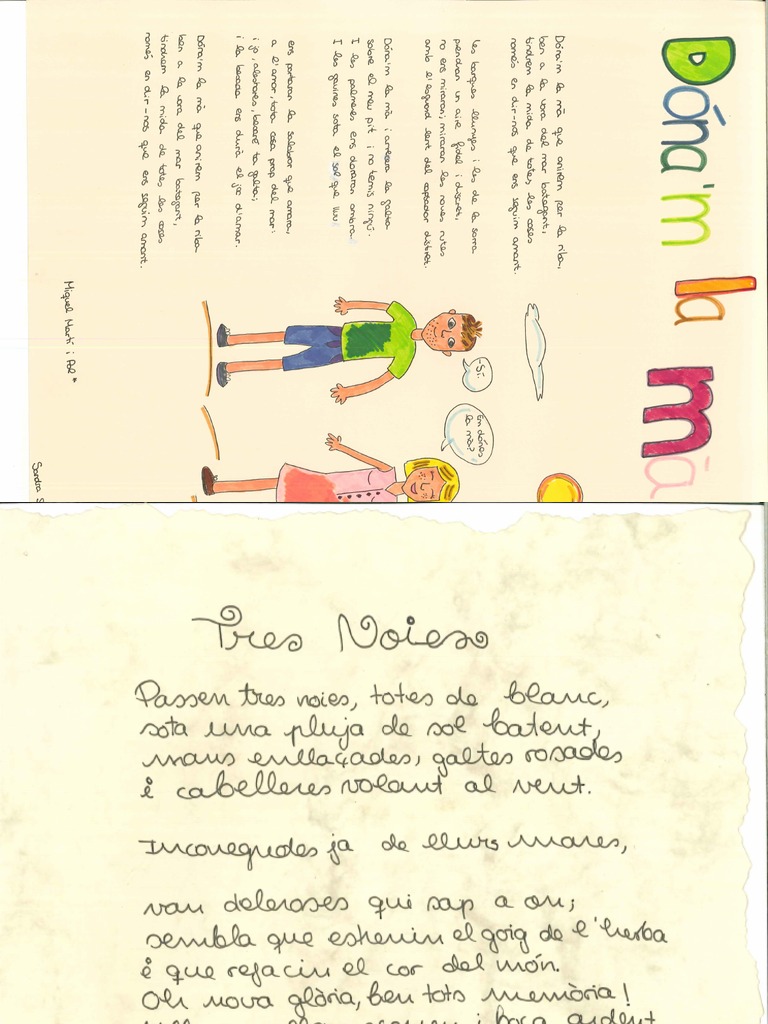 Dóna'm la mà
Dóna'm la mà que anirem per la riba,
ben a la vora del mar bategant,
tindrem la mida de totes les coses
només en dir-nos que ens seguim amant.
Les barques llunyes i les de la sorra
prendran un aire fidel i discret,
no ens miraran; miraran les noves rutes
amb l'esguard lent del copsador distret.
Dóna'm la mà i arrecera la galta
sobre el meu pit i no temis ningú.
I les palmeres ens donaran ombra.
I les gavines sota el sol que lluu
ens portaran la salabror que amara,
a l'amor, tota cosa prop del mar:
i jo, aleshores, besaré ta galta;
i la besada ens durà el joc d'amar.
Dóna'm la mà que anirem per la riba
ben a la vora del mar bategant,
tindrem la mida de totes les coses
només en dir-nos que ens seguim amant.
-Sí.
Em dónes
la mà?
Miquel Martí i Pol*
Sandra S
Tres Noies
Passen tres noies, totes de blanc,
sota una pluja de sol batent,
mans enllaçades, galtes rosades
i cabelleres volant al vent.
Inconegudes ja de llurs mares,
van deleroses qui sap a on;
sembla que estrenin el goig de l'herba
i que refacin el cor del món.
Oh nova glòria, ben tots memòria!
i boca ardent